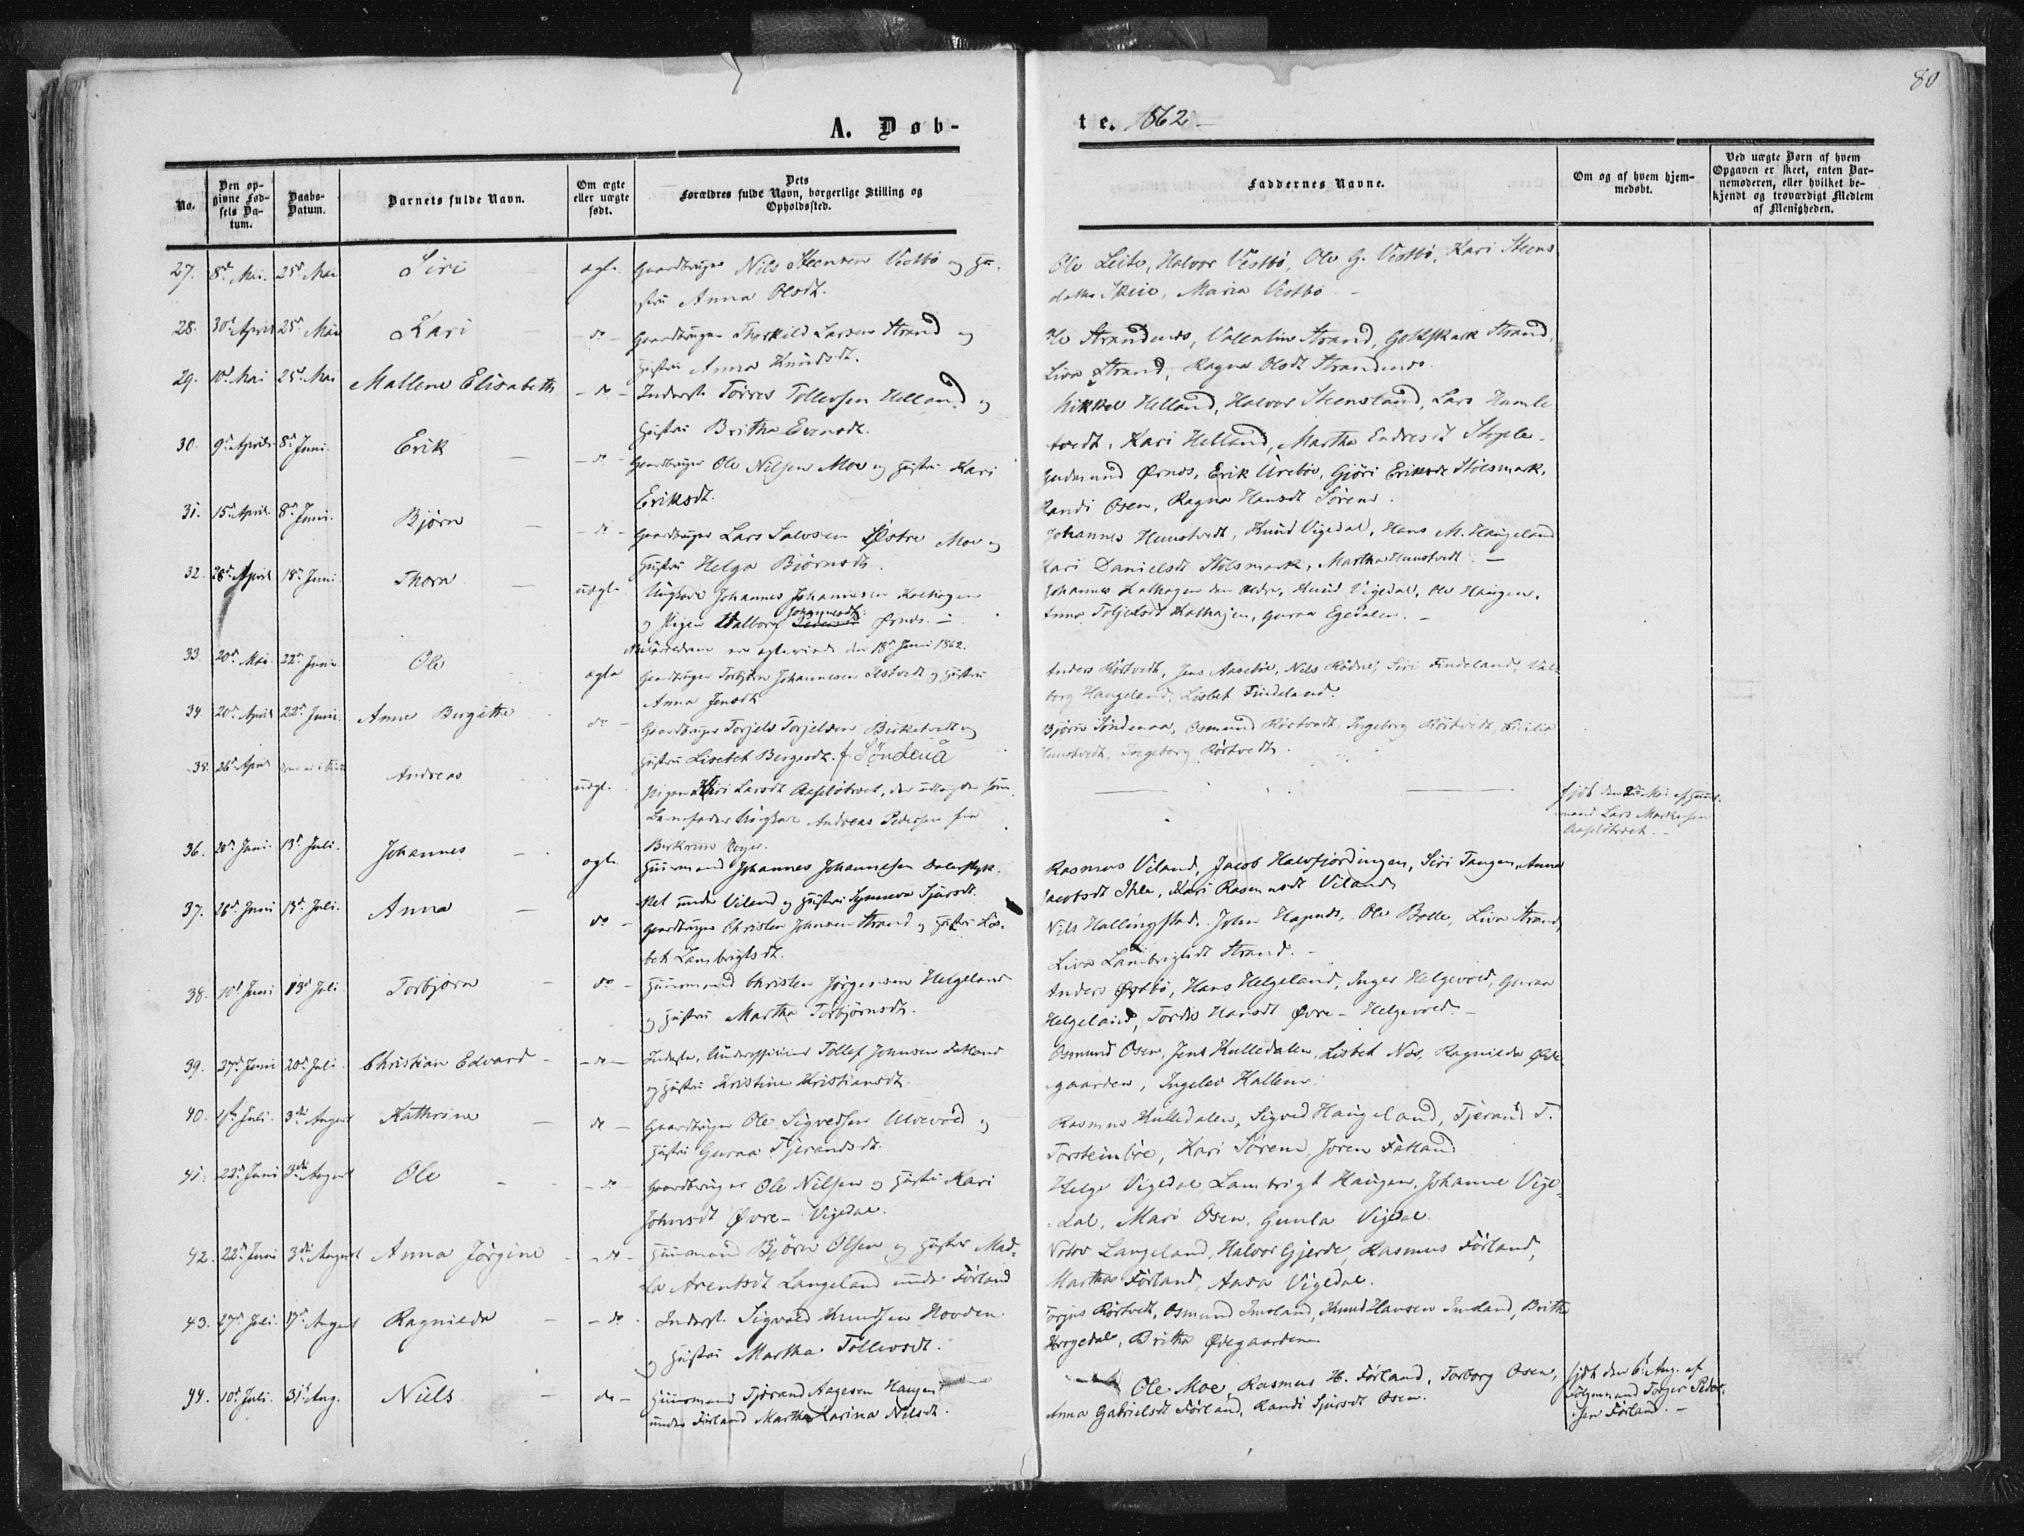 80
A. Døb-
te. 1862
No.
Den op-
givne Fød-
sels Da-
tum.
Daabs-
Datum.
Barnets fulde Navn.
Om ægte
eller uægte
født.
Dets
Forældres fulde Navn, borgerlige Stilling og
Opholdssted.
Faddernes Navne.
Om og af hvem hjem-
medøbt.
Ved uægte Børn af hvem
Opgaven er skeet, enten Bar-
nemoderen, eller hvilket be-
kjendt og troværdigt Medlem
af Menigheden.
27. 8d Mai. 25d Mai Siri ægt. Gaardbruger Nils Steensen Vestbø og Hu-
stru Anna Olsdt.
Ole Leite, Halvor Vestbø, Ole G. Vestbø, Kari Steens
datter Skeie, Maria Vestbø
28. 30d April 25d Mai Kari - do - Gaardbruger Thorkild Larsen Strand og
Hustru Anna Knudsdt.
Ole Strandenes, Valentin Strand, Gotskalk Strand,
Liva Strand, Ragna Olsdt Strandenes.
29. 10d Mai 25d Mai Mallene Elisabeth - do - Inderst Torres Tollevsen Helland og
Hustru Britha Evensdt.
Mikkel Helland, Halvor Steensland, Lars Humle
tvedt, Kari Helland, Martha Endresdt
30. 9d April 8d Juni. Erik - do - Gaardbruger Ole Nilsen Moe og Hustru Kari
Eriksdt.
Gudmund Ørnes, Erik Urebø, Gjøri Eriksdt Stølsmark,
Randi Osen, Ragna Hansdt Sørene.
31. 15d April. 8d Juni. Bjørn - do - Gaardbruger Lars Salvesen Østre Moe og
Hustru Helga Bjørnsdt.
Johannes Humstvedt, Knud Vigedal, Hans M. Haugeland
Kari Danielsdt Stølsmark, Martha Humstvedt. -
32. 28d April 18d Juni Thora uægte Ungkarl Johannes Johannesen Kalhagen
og Pigen Valborg Johannesdt. Ørnes. -
Forældrene ere ægteviede den 18d Juni 1862.
Johannes Kalhagen den ældre, Knud Vigedal, Ole Haugen,
Anna Toljelsdt Kalhagen, Guroa Egedalen. -
33. 20d Mai 22d Juni Ole ægte Gaardbruger Torbjørn Johannesen Østvedt og Hustru
Anna Jensdt.
Anders Røstvedt, Jens Aasebøe, Nils Rødne, Siri Findeland, Val-
borg Haugeland, Lisbet Findeland.
34. 20d April 22d Juni. Anne Birgitthe do - Gaardbruger Torjels Torjelsen Birketvedt og
Hustru Lisebet Børgesdt. f. Søndenå
Bjørn Søndenaa, Osmund Røstvedt, Ingeborg Røstvedt, Cicilia
Humstvedt, Ingeborg Røstvedt.
35. 26d April Andreas uægt. Pigen Siri Larsdt Aasløbraet, der udlagde som
Barnefader Ungkarl Andreas Pedersen fra
Birkrem Sogn.
hjdt. den 2d Mai af Huus-
mand Lars Mortensen
Aasløbraet. -
36. 20d Juni. 13d Juli. Johannes - ægt. Huusmand Johannes Johannesen Dalestyk-
ket under Viland og Hustru Synneva Sjursdt.
Rasmus Viland, Jacob Halvfjordingen, Siri Tangen, Anna
Jacobsdt Ihle, Kari Rasmusdt Viland
37. 26d Juni 13d Juli. Anna - do - Gaardbruger Christen Johnsen Strand og Hustru Lis-
bet Lambrigtsdt.
Nils Hallingstad, John Hapnes, Ole Botle, Liva Strand,
Liva Lambrigtsdt Strand. -
38. 10d Juni 13d Juli Torbjørn - do - Huusmand Christen Jørgensen Helgeland
og Hustru Martha Torbjørnsdt.
Anders Østbø, Hans Helgeland, Inger Helgevold, Guroa
Helgeland, Tordis Hansdt Øvre - Helgevold. -
39. 27d Juni 20d Juli. Christian Edvard - - do - Inderst, Underofficier Tollef Johnsen Fatland
og Hustru Kristine Kristiansdt.
Osmund Osen, Jens Hulledalen, Lisbet Næs, Ragnilda Øde-
gaarden, Ingelev Hallem.
40. 4d Juli. 3die August Kathrine - do - Gaardbruger Ole Sigvedsen Ulvevold og
Hustru Guroa Tjerandsdt.
Rasmus Hulledalen, Sigved Haugeland, Tjerand T.
Torsteinbøe, Kari Sørene, Joren Fatland
41. 22d Juni 3die August Ole - - do - Gaardbruger Ole Nilsen og Hustru Kari
Johnsdt Øvre - Vigedal.
Helge Vigedal, Lambrigt Haugen, Johanne Vige-
dal, Mari Osen, Gunla Vigedal.
42. 22d Juni 3die August Anna Jørgine - - do - Huusmand Bjørn Olsen og Hustru Mad-
la Arentsdt Langeland under Førland
Langeland, Halvor Gjerde, Rasmus Førland,
Martha Førland, Aasa Vigedal.
43. 27d Juli. 17d August Ragnilda - - do. Inderst. Sigvald Knudsen Hovden
og Hustru Martha Tollevsdt.
Torjus Røstvedt, Osmund Imsland, Knud Hansen Imsland, Britha
Krogedal, Britha Ødegaarden
44. 10d Juli. 31d Aug. Niels - do - Huusmand Tjerand Aagesen Haugen
under Førland Martha Karina Nilsdt.
Ole Moe, Rasmus H. Førland, Torborg Osen,
Anna Gabrielsdt Førland, Randi Sjursdt Osen.
hjdt. den 6d Aug. af
Følgemand Torger Peder-
sen Førland. -